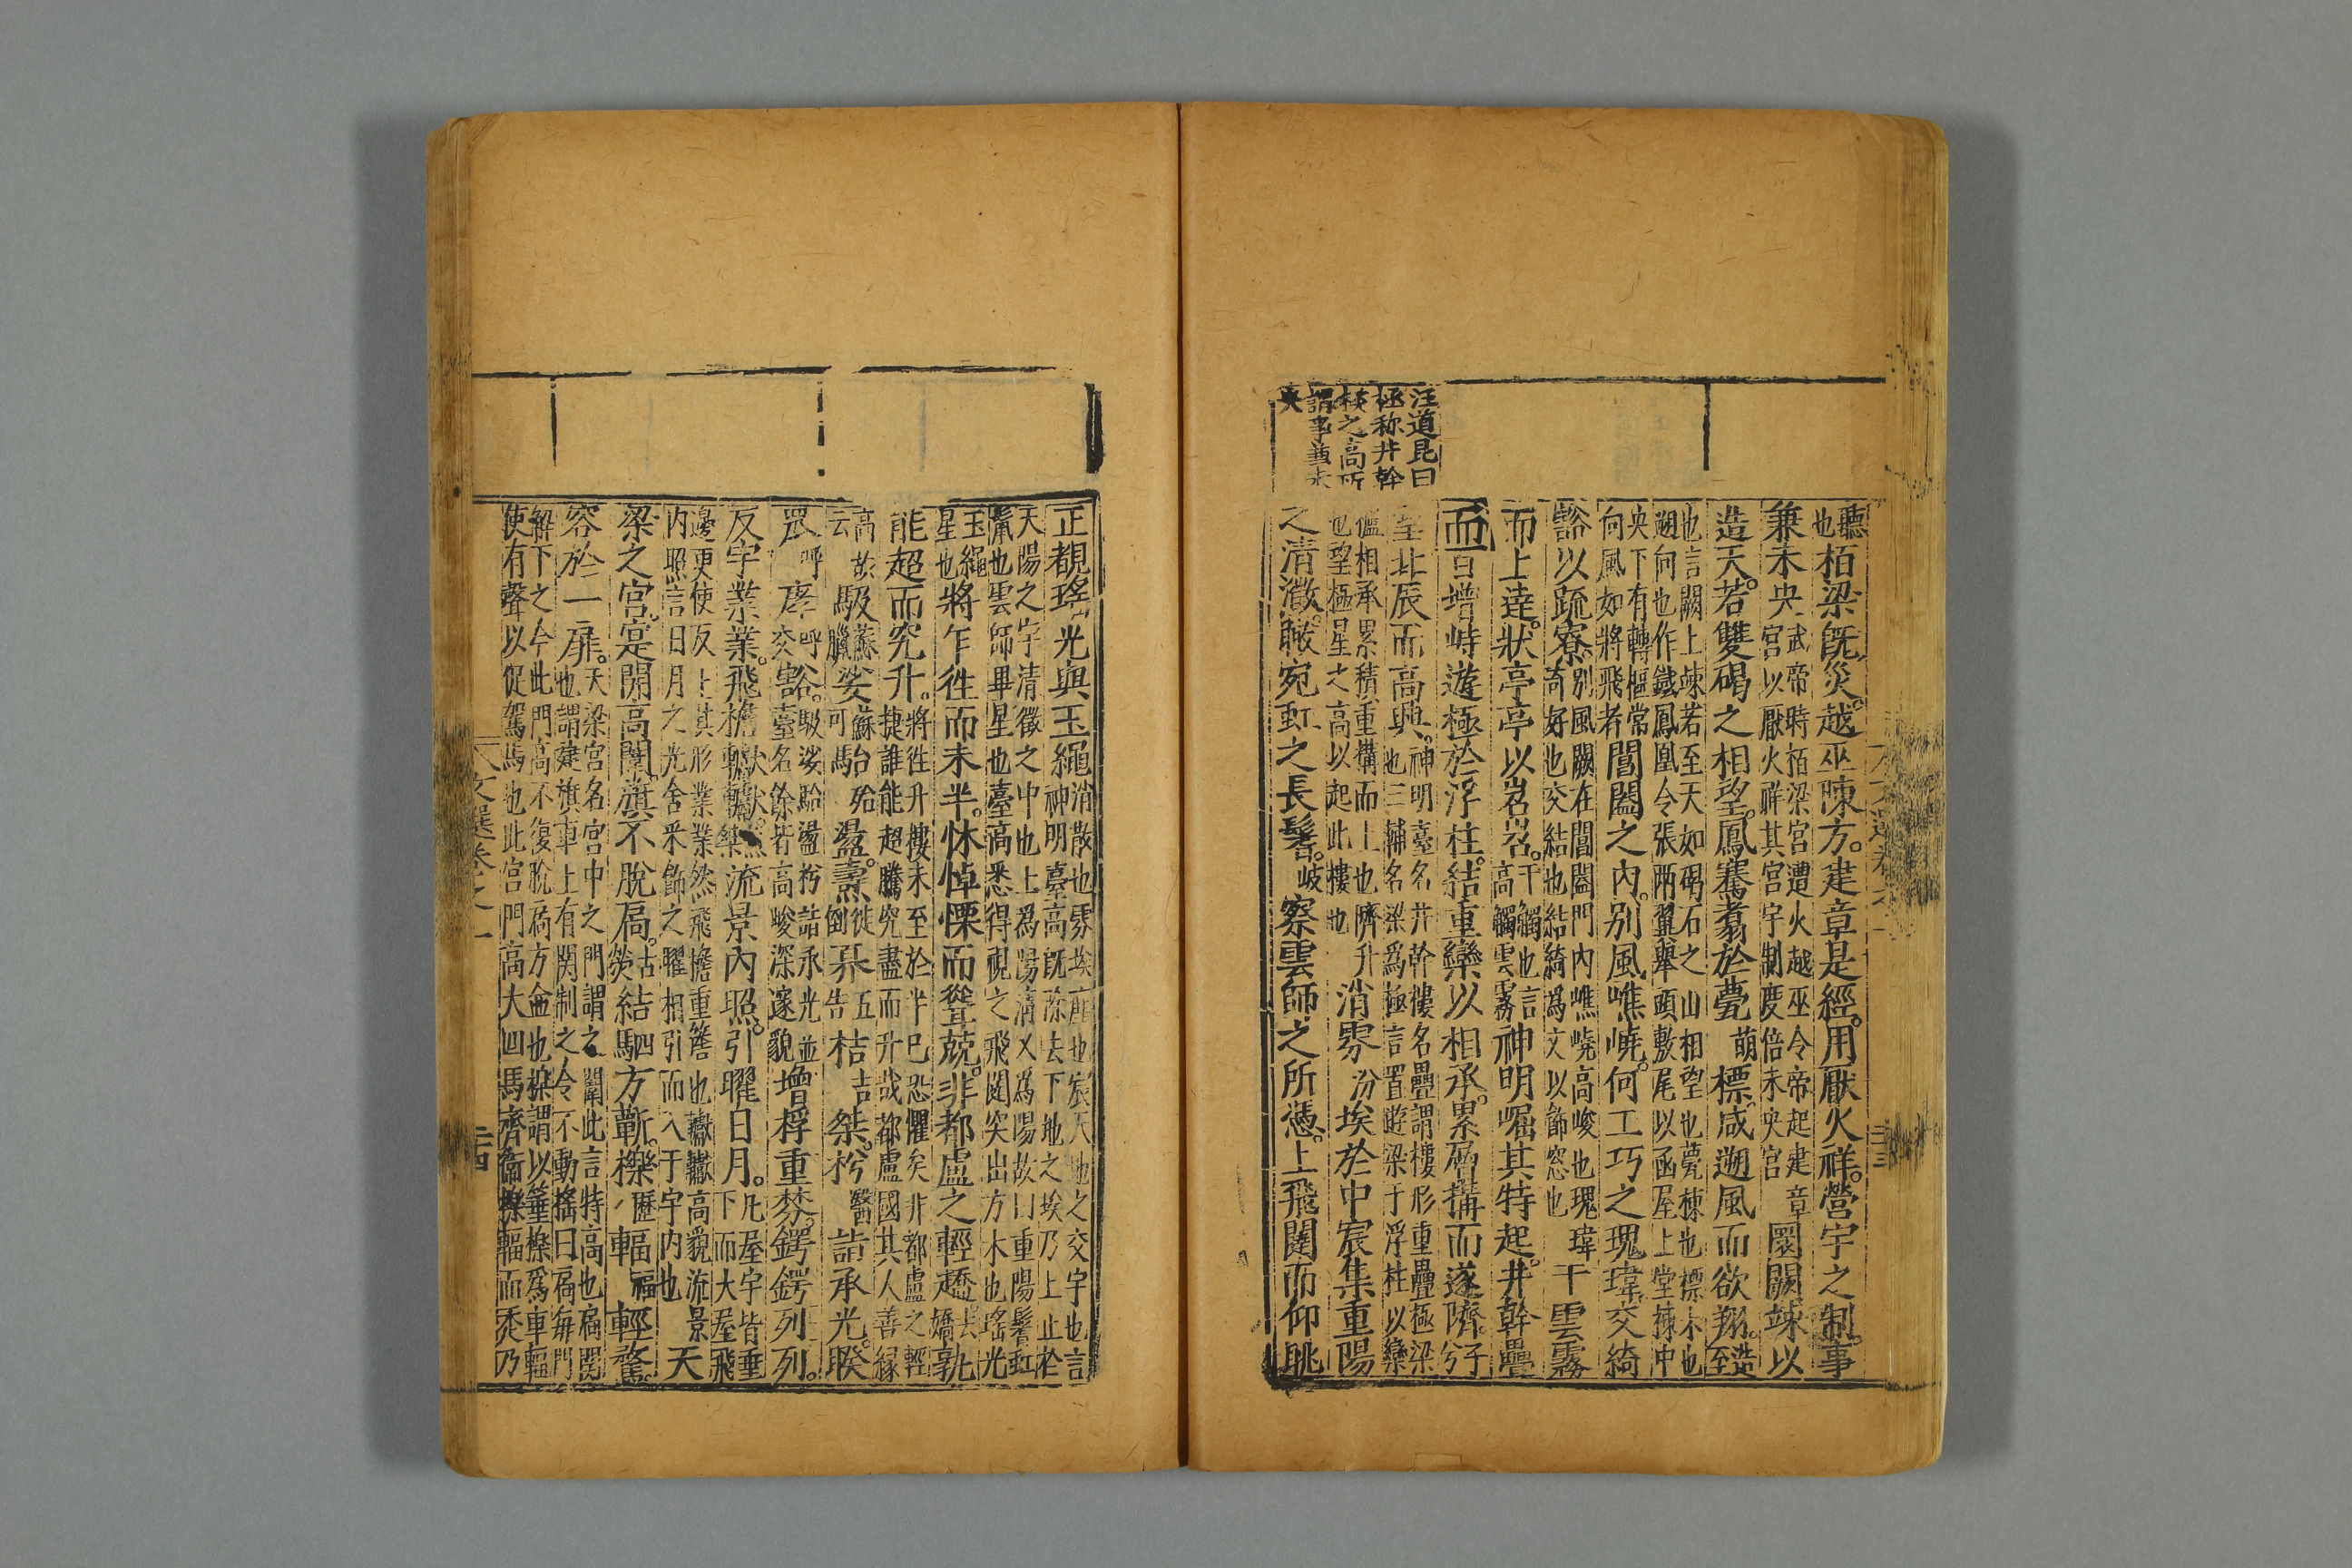 汪道昆曰
極称井幹
樓之高所
謂事兼未
央
聽
也
栢梁既災。越巫陳方。建章是經。用厭火祥。營宇之制。事
兼未央
武帝時栢梁宮遭火越巫令帝起建章
宮以厭火祥其宮宇制度倍未央宮
圜闕竦以
造天。若雙碣之相望。鳳騫翥於甍萌標。咸遡風而欲翔。
造
至
也言闕上竦若至天如碣石之山相望也甍棟也標木也
遡向也作鐵鳳凰令張兩翼舉頭敷尾以函屋上堂棟中
央下有轉樞常
向風如將飛者
閶闔之內。別風嶕嶢。何工巧之瑰瑋。交綺
豁以疏寮。
別風闕在閶闔門內嶕嶢高峻也瑰瑋
奇好也交結也結綺為文以飾窓也
干雲霧
而上達。狀亭亭以岧岧。
干觸也言
高觸雲霧
神明崛其特起。井幹疊
而百增峙遊極於浮柱。結重欒以相承。累層構而遂隮。子
兮
望北辰而高興。
神明臺名井幹樓名疊謂樓形重疊極梁
也三輔名梁為極言置遊梁于浮柱以欒
櫨相承累積重構而上也隮升
也望極星之高以起此樓也
消雰汾埃於中宸集重陽
之清澂。瞰宛虹之長鬐。岐察雲師之所憑。上飛闥而仰眺
正覩瑤光與玉繩
消散也雰埃塵也宸天地之交宇也言
神明臺高既除去下地之埃乃上止於
天陽之宇清徵之中也上為陽清又為陽故曰重陽鬐虹
鬣也雲師畢星也臺高悉得視之飛闥突出方木也瑤光
玉繩
星也
將乍徃而未半。怵悼慄而聳兢。非都盧之輕趫。去嬌孰
能超而究升。
將徃升樓未至於半已恐懼矣非都盧之輕
捷誰能超騰究盡而升哉都盧國其人善緣
高故
云
馺蘇臘娑蘇可駘台馬殆盪。燾徒倒奡五告桔吉桀。枍醫詣承光。睽
罛呼庨呼交豁。
馺娑駘盪枍詣承光並
臺名餘皆高峻深邃貌
增桴重棼。鍔鍔列列。
反宇業業。飛檐轍轍。
流景內照。引曜日月。
凡屋宇皆垂
下而大屋飛
邊更使反上其形業業然飛檐重簷也轍轍高貌流景
內照言日月之光舍釆飾之曜相引而入于宇內也
天
梁之宮。寔開高闈。旗不脫扃。古熒結駟四方蘄。櫟歷輻福輕騖。
容於一扉。
天梁宮名宮中之門謂之闈此言特高也扃関
也謂建旗車上有関制之令不動搖曰扃每門
解下之今此門高不復脫扃方盦也櫟謂以箠櫟為車輻
使有聲以促駕馬也此宮門高大四馬齊銜櫟輻而疾乃
文選卷之一
二十四